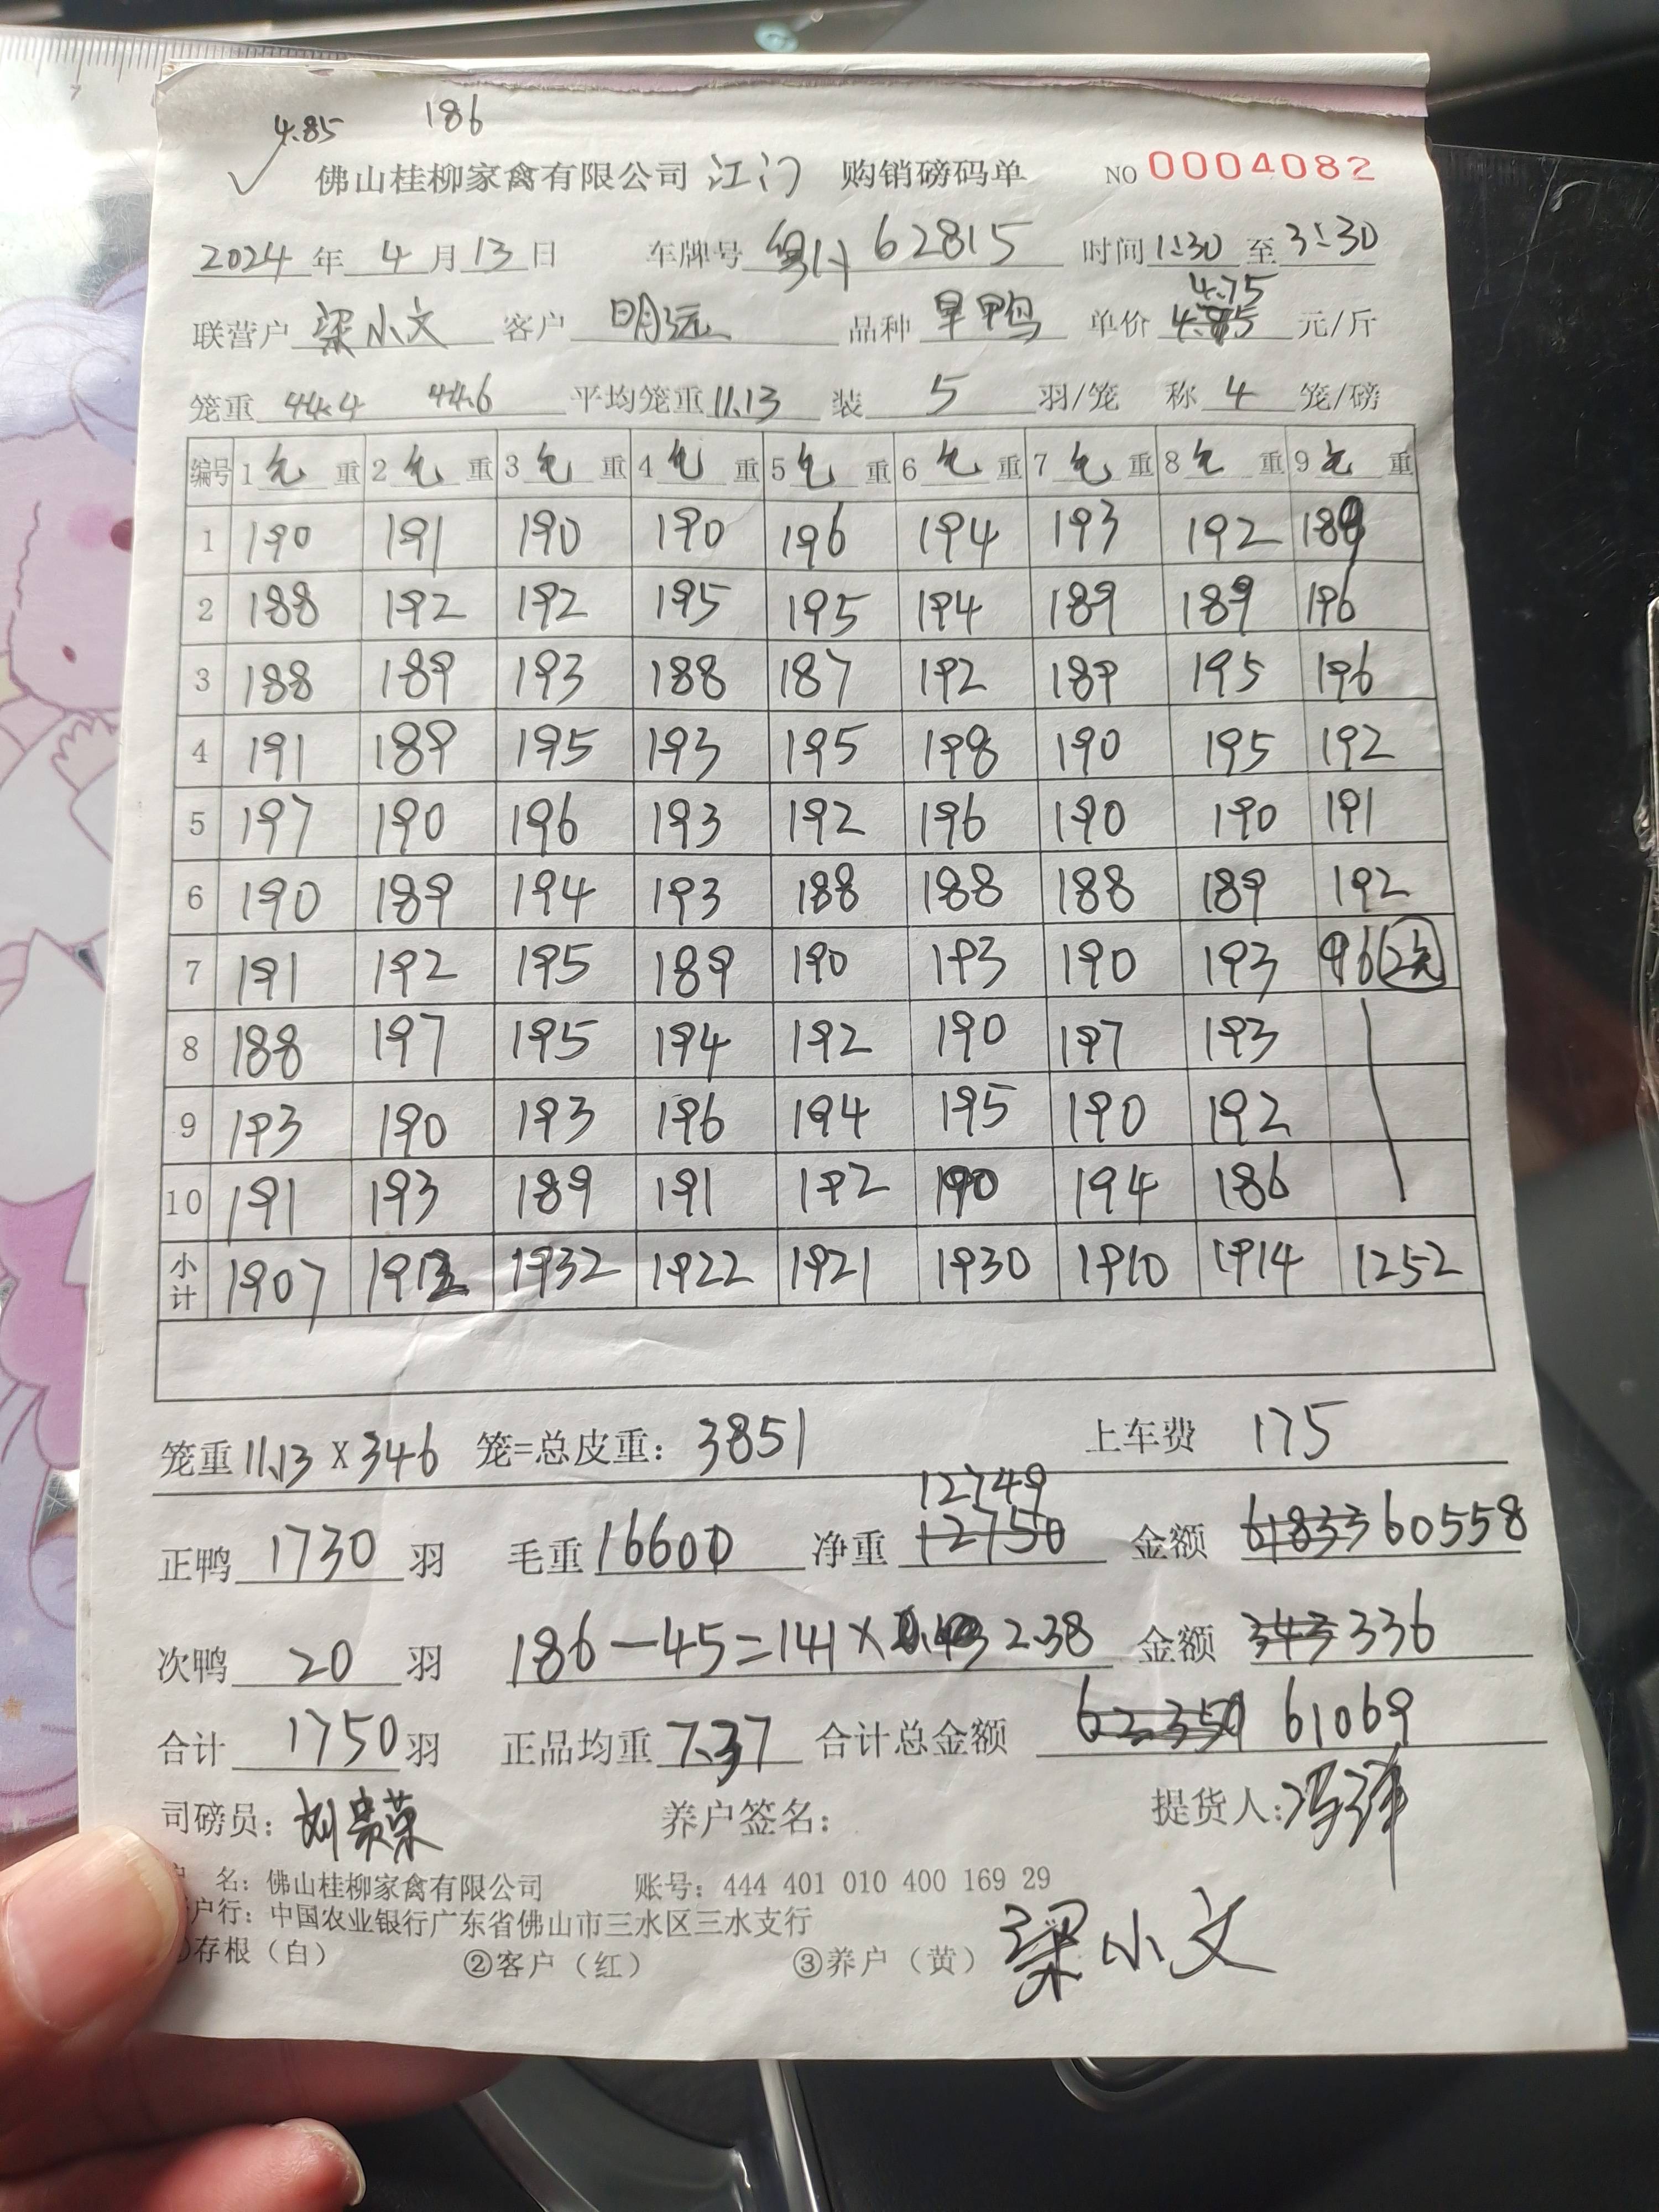 4.85 186
佛山桂柳家禽有限公司 江门 购销磅码单 NO 0004082
2024 年 4 月 13 日 车牌号 62815 时间 1:30 至 3:30
4.75
联营户 梁小文 客户 明远 品种 旱鸭 单价 4.85 元/斤
笼重 44.4 44.6 平均笼重 11.13 装 5 羽/笼 称 4 笼/磅
编号 1 毛 重 2 毛 重 3 毛 重 4 毛 重 5 毛 重 6 毛 重 7 毛 重 8 毛 重 9 毛 重
1 190 191 190 190 196 194 193 192 189
2 188 192 192 195 195 194 189 189 196
3 188 189 193 188 187 192 189 195 196
4 191 189 195 193 195 198 190 195 192
5 197 190 196 193 192 196 190 190 191
6 190 189 194 193 188 188 188 189 192
7 191 192 195 189 190 193 190 193 96
8 188 197 195 194 192 190 197 193
9 193 190 193 196 194 195 190 192
10 191 193 189 191 192 190 194 186
小计 1907 1912 1932 1922 1921 1930 1910 1914 1252
笼重 11.13 X 346 笼=总皮重: 3851 上车费 175
12749
正鸭 1730 羽 毛重 16600 净重 12750 金额 61833 60558
次鸭 20 羽 186-45=141× 2.38 金额 343 336
合计 1750 羽 正品均重 7.37 合计总金额 61069
司磅员: 养户签名: 提货人:
户 名: 佛山桂柳家禽有限公司 账号: 444 401 010 400 169 29
户行: 中国农业银行广东省佛山市三水区三水支行
存根(白) ②客户(红) ③养户(黄) 梁小文